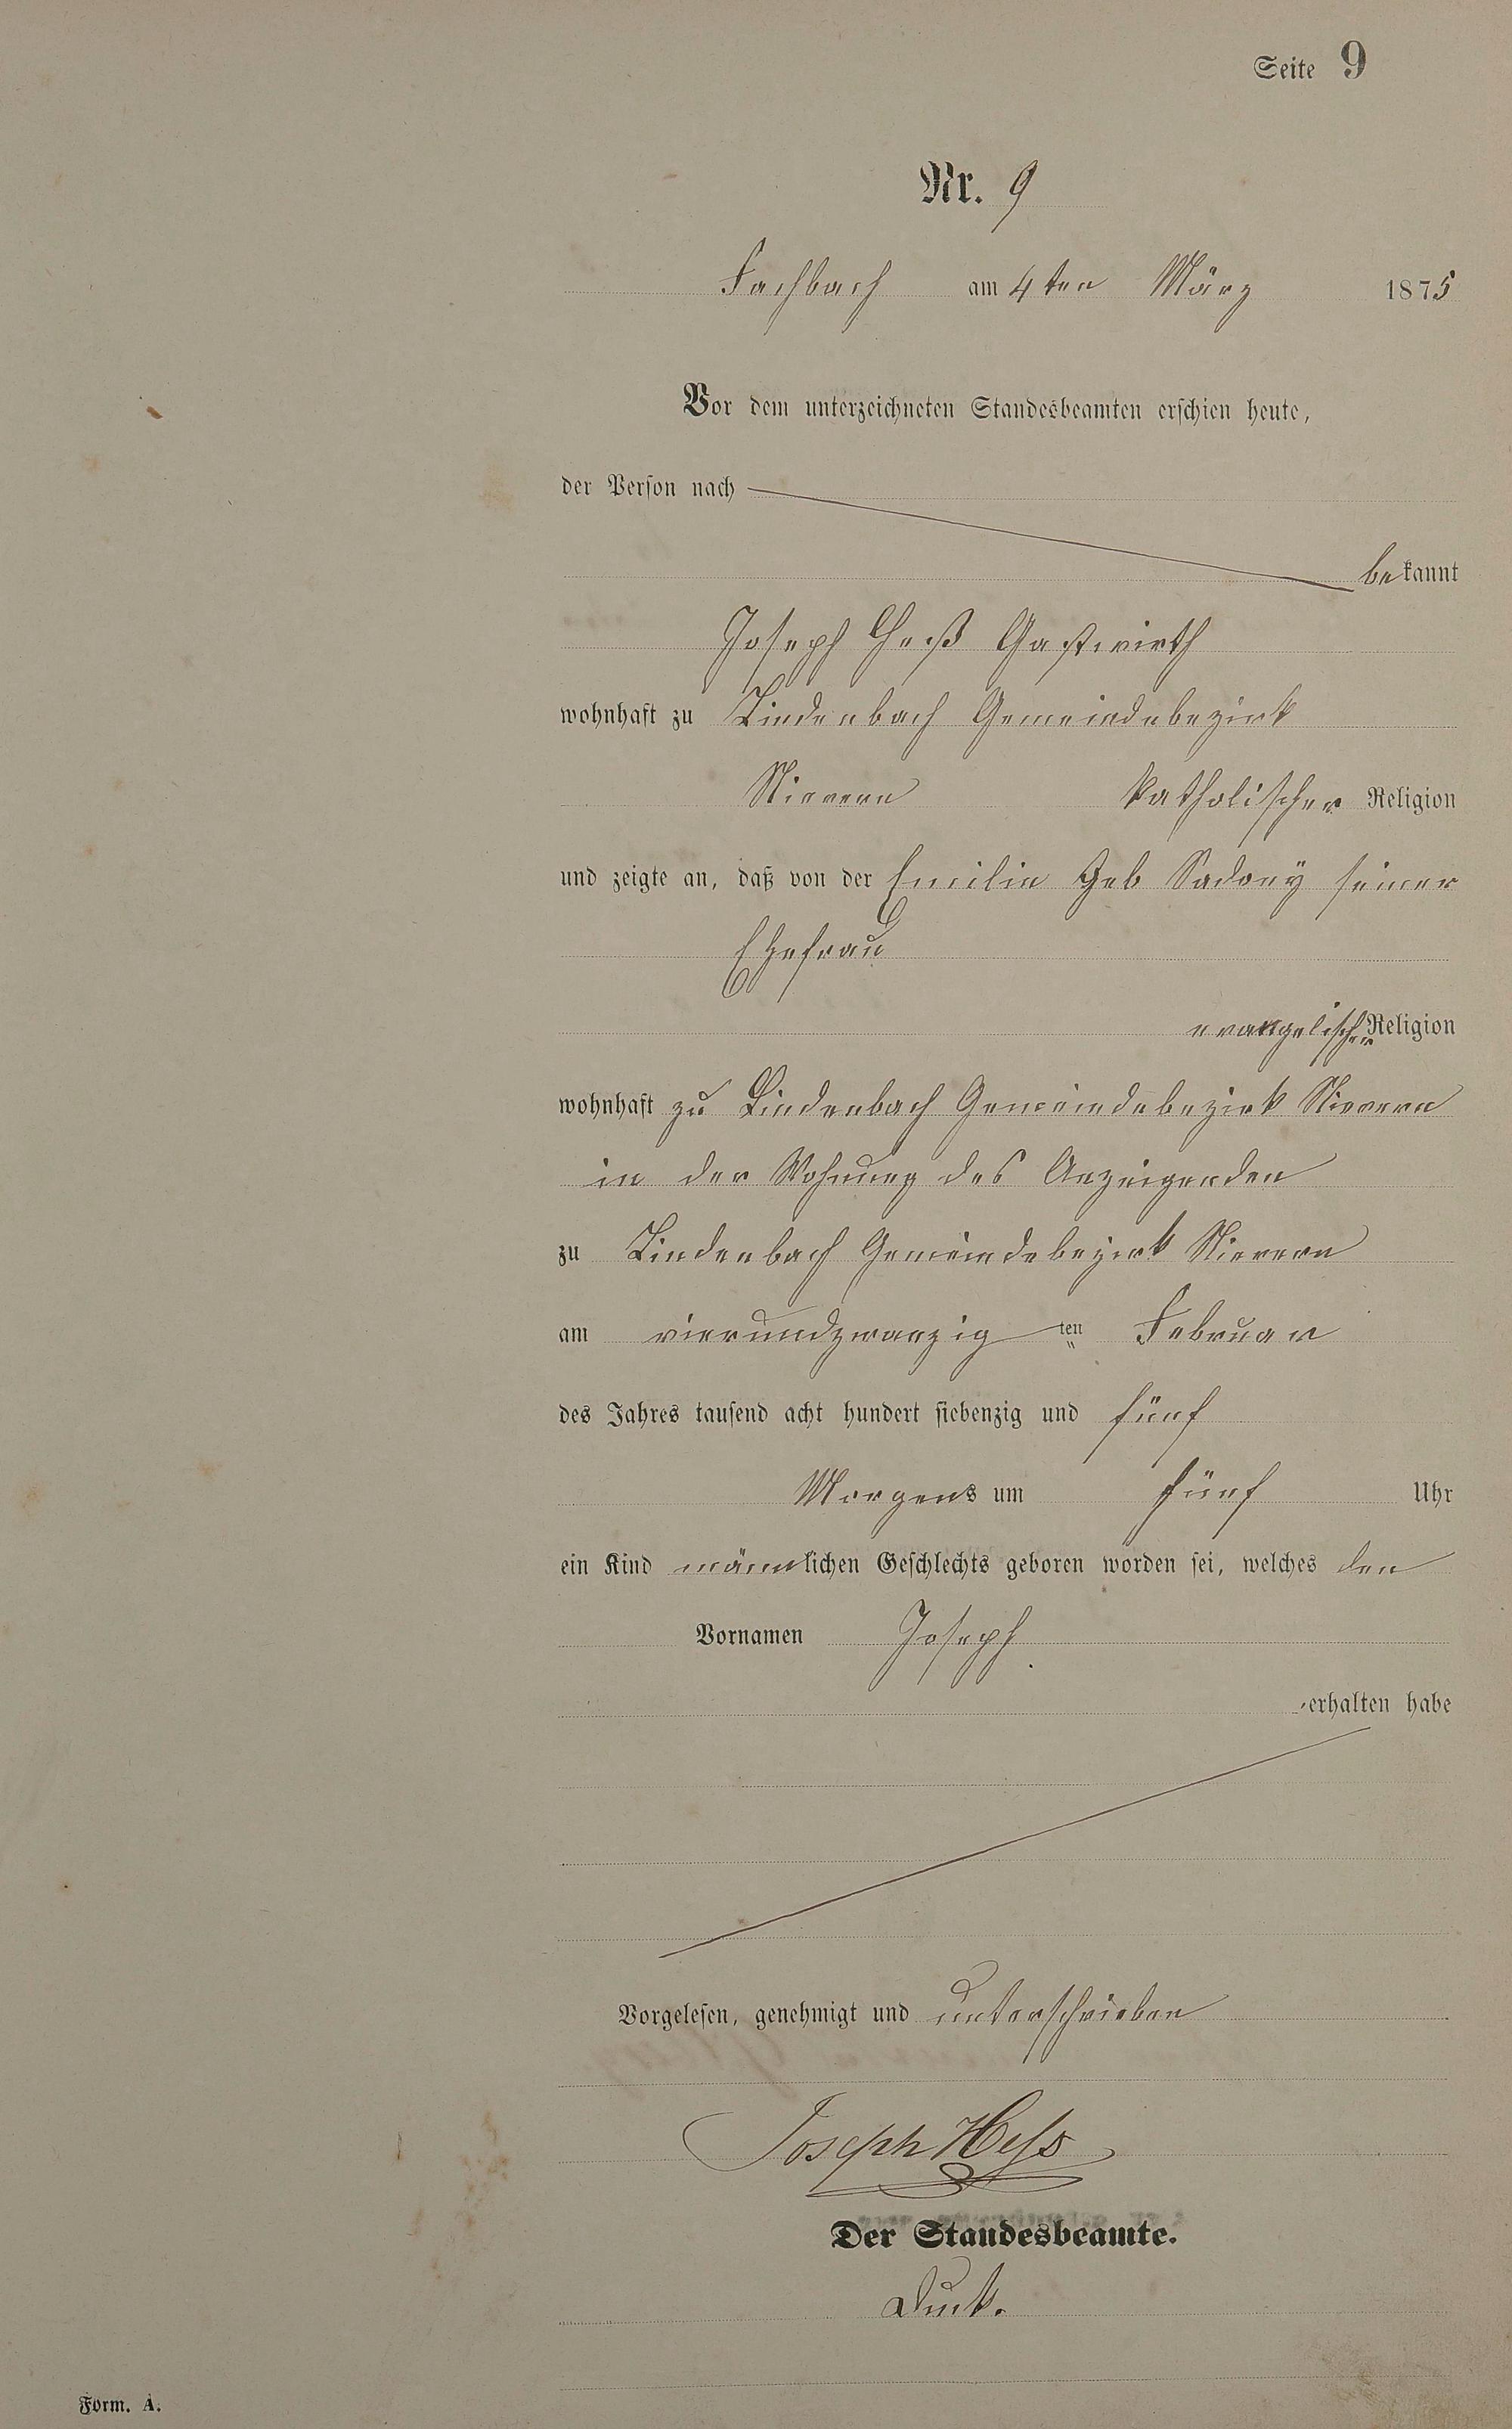 Seite 9
Nr. 9
Fachbach am 4ten März 1875
Vor dem unterzeichneten Standesbeamten erschien heute,
der Person nach
bekannt
Joseph Heß Gastwirth
wohnhaft zu Lindenbach Gemeindebezirk
Nievern katholischer Religion
und zeigte an, daß von der Emilie Geb Sadony seiner
Ehefrau
evangelischer Religion
wohnhaft zu Lindenbach Gemeindebezirk Nievern
in der Wohnung des Anzeigenden
zu Lindenbach Gemeindebezirk Nievern
am vierundzwanzig ten Februar
des Jahres tausend acht hundert siebenzig und fünf
Morgens um fünf Uhr
ein Kind männlichen Geschlechts geboren worden sei, welches den
Vornamen Joseph
erhalten habe
Vorgelesen, genehmigt und unterschrieben
Joseph Heſs
Der Standesbeamte.
Form. A.